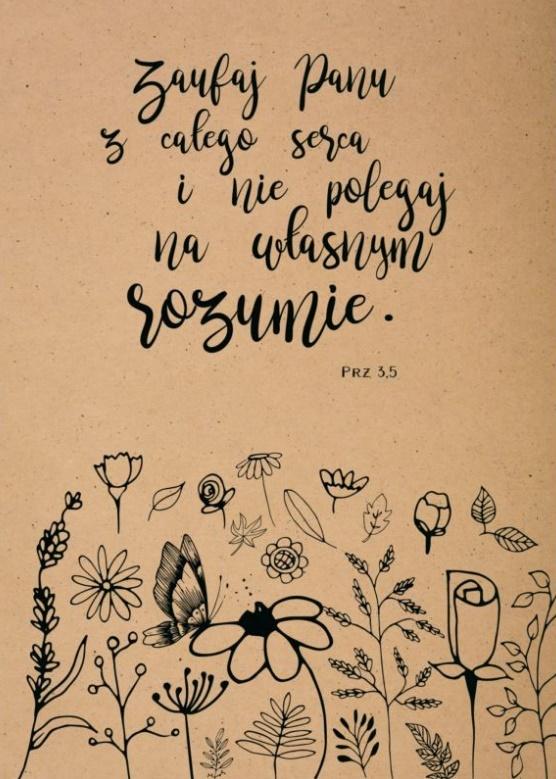 Zaufaj Panu
z całego serca
i nie polegaj
na własnym
rozumie.
Prz 3,5